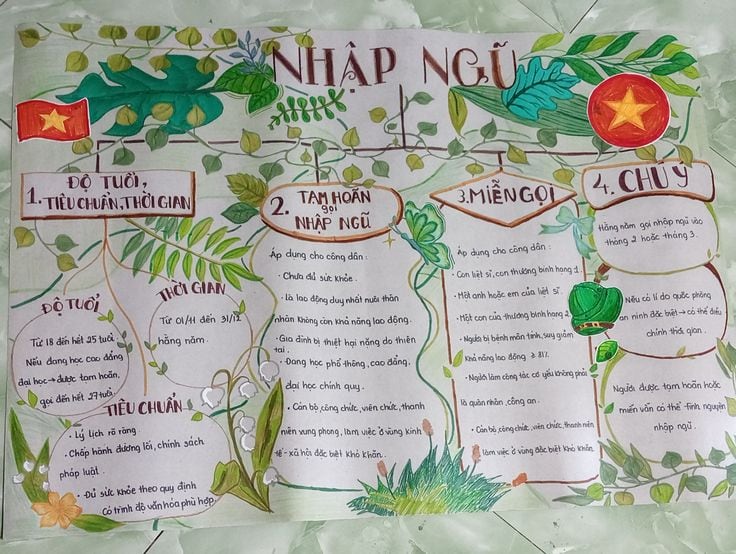 NHẬP NGŨ
1. ĐỘ TUỔI,
TIÊU CHUẨN, THỜI GIAN
ĐỘ TUỔI
Từ 18 đến hết 25 tuổi
Nếu đang học cao đẳng
đại học → được tạm hoãn,
gọi đến hết 27 tuổi.
THỜI GIAN
Từ 01/11 đến 31/12
hằng năm.
TIÊU CHUẨN
• Lý lịch rõ ràng
• Chấp hành đường lối, chính sách
pháp luật.
• Đủ sức khỏe theo quy định
có trình độ văn hóa phù hợp.
2. TẠM HOÃN
gọi
NHẬP NGŨ
Áp dụng cho công dân:
• Chưa đủ sức khỏe.
• Là lao động duy nhất nuôi thân
nhân không còn khả năng lao động.
• Gia đình bị thiệt hại nặng do thiên
tai.
• Đang học phổ thông, cao đẳng,
đại học chính quy.
• Cán bộ, công chức, viên chức, thanh
niên xung phong, làm việc ở vùng kinh
tế - xã hội đặc biệt khó khăn.
3. MIỄN GỌI
Áp dụng cho công dân:
• Con liệt sĩ, con thương binh hạng 1.
• Một anh hoặc em của liệt sĩ.
• Một con của thương binh hạng 2.
• Người bị bệnh mãn tính, suy giảm
khả năng lao động ≥ 81%.
• Người làm công tác cơ yếu không phải
là quân nhân, công an.
• Cán bộ, công chức, viên chức, thanh niên
làm việc ở vùng đặc biệt khó khăn.
4. CHÚ Ý
Hằng năm gọi nhập ngũ vào
tháng 2 hoặc tháng 3.
Nếu có lí do quốc phòng
an ninh đặc biệt → có thể điều
chỉnh thời gian.
Người được tạm hoãn hoặc
miễn vẫn có thể tình nguyện
nhập ngũ.